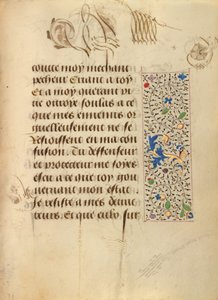 contre moy meschant
pecheur Criant a toy
Et a moy querant
oeuvre soulas a ce
que mes ennemis or
guelleusement ne se
resioissent en ma con
fusion. Du deffenseur
et protecteur me soyes
affin a ce que toy gou
uernant mon estat
Je resiste a mes deuia
teurs. Et que celly sur